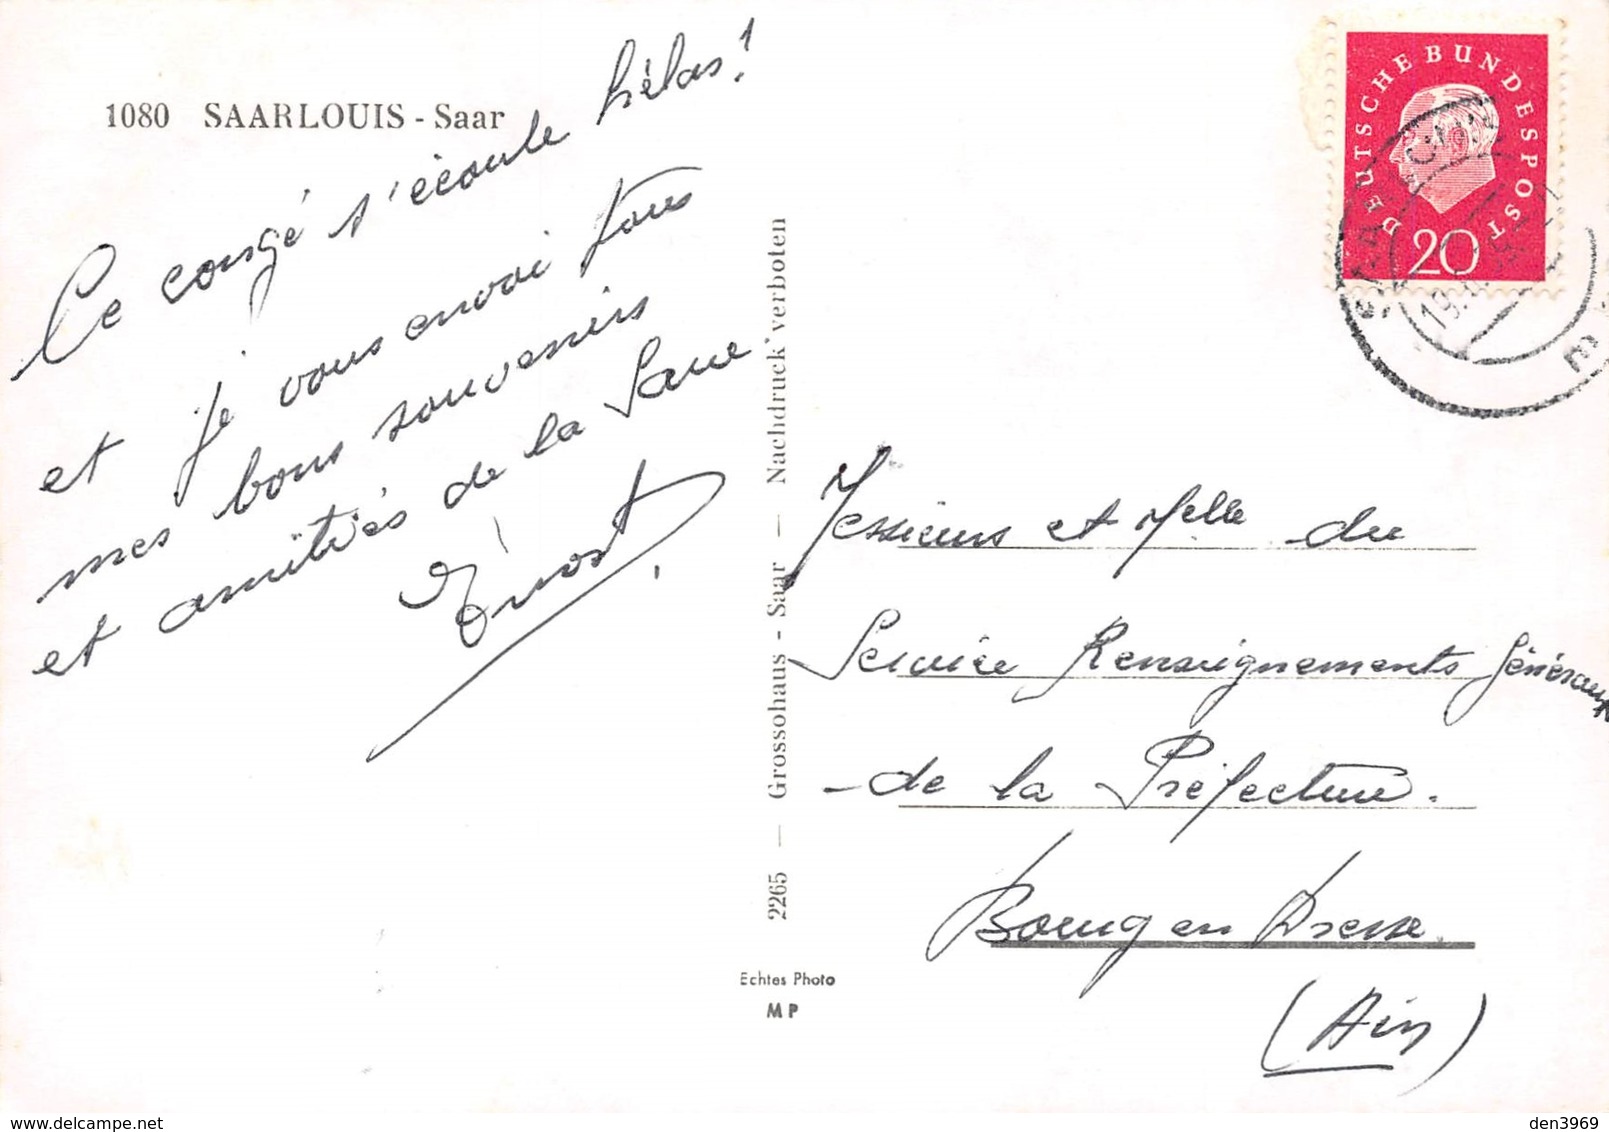 1080 SAARLOUIS - Saar
Ce congé s'écoule hélas!
et je vous envoi tous
mes bons souvenirs
et amitiés de la Sarre.
DEUTSCHE BUNDESPOST
20
Messieurs et Melle du
Service Renseignements Généraux
de la Préfecture.
Bourg en Bresse.
(Ain)
2265 — Grossohaus - Saar — Nachdruck verboten
Echtes Photo
MP
den3969